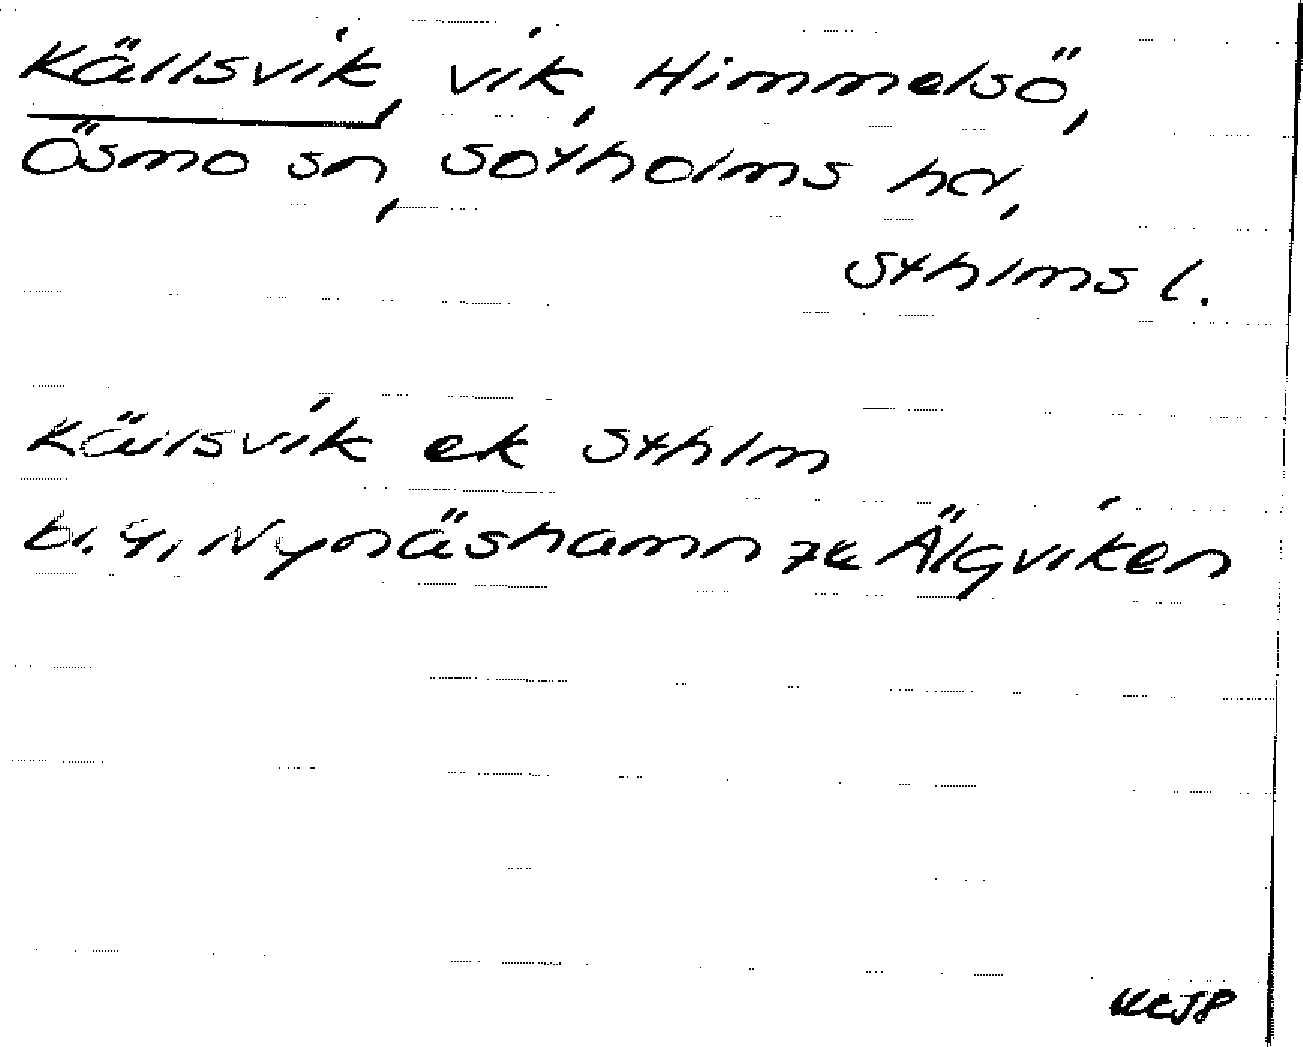 Källsvik, vik, Himmelsö,
Ösmo sn, Sotholms hd,
Sthlms l.
Källsvik ek Sthlm
bl. 4, Nynäshamn Älgviken